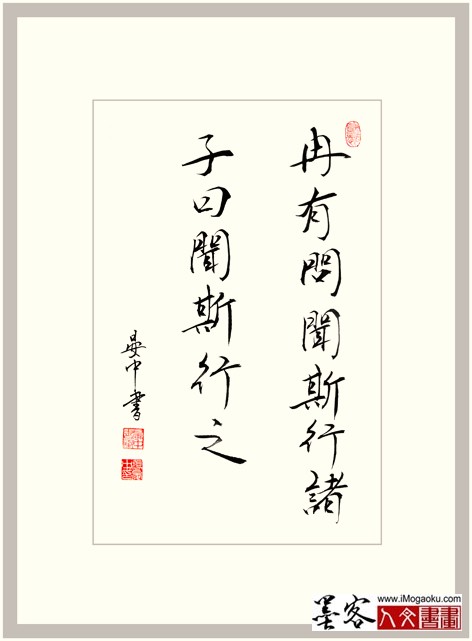 冉有問聞斯行諸
子曰聞斯行之
晏中書
墨客
www.iMogaoku.com
人文書畫